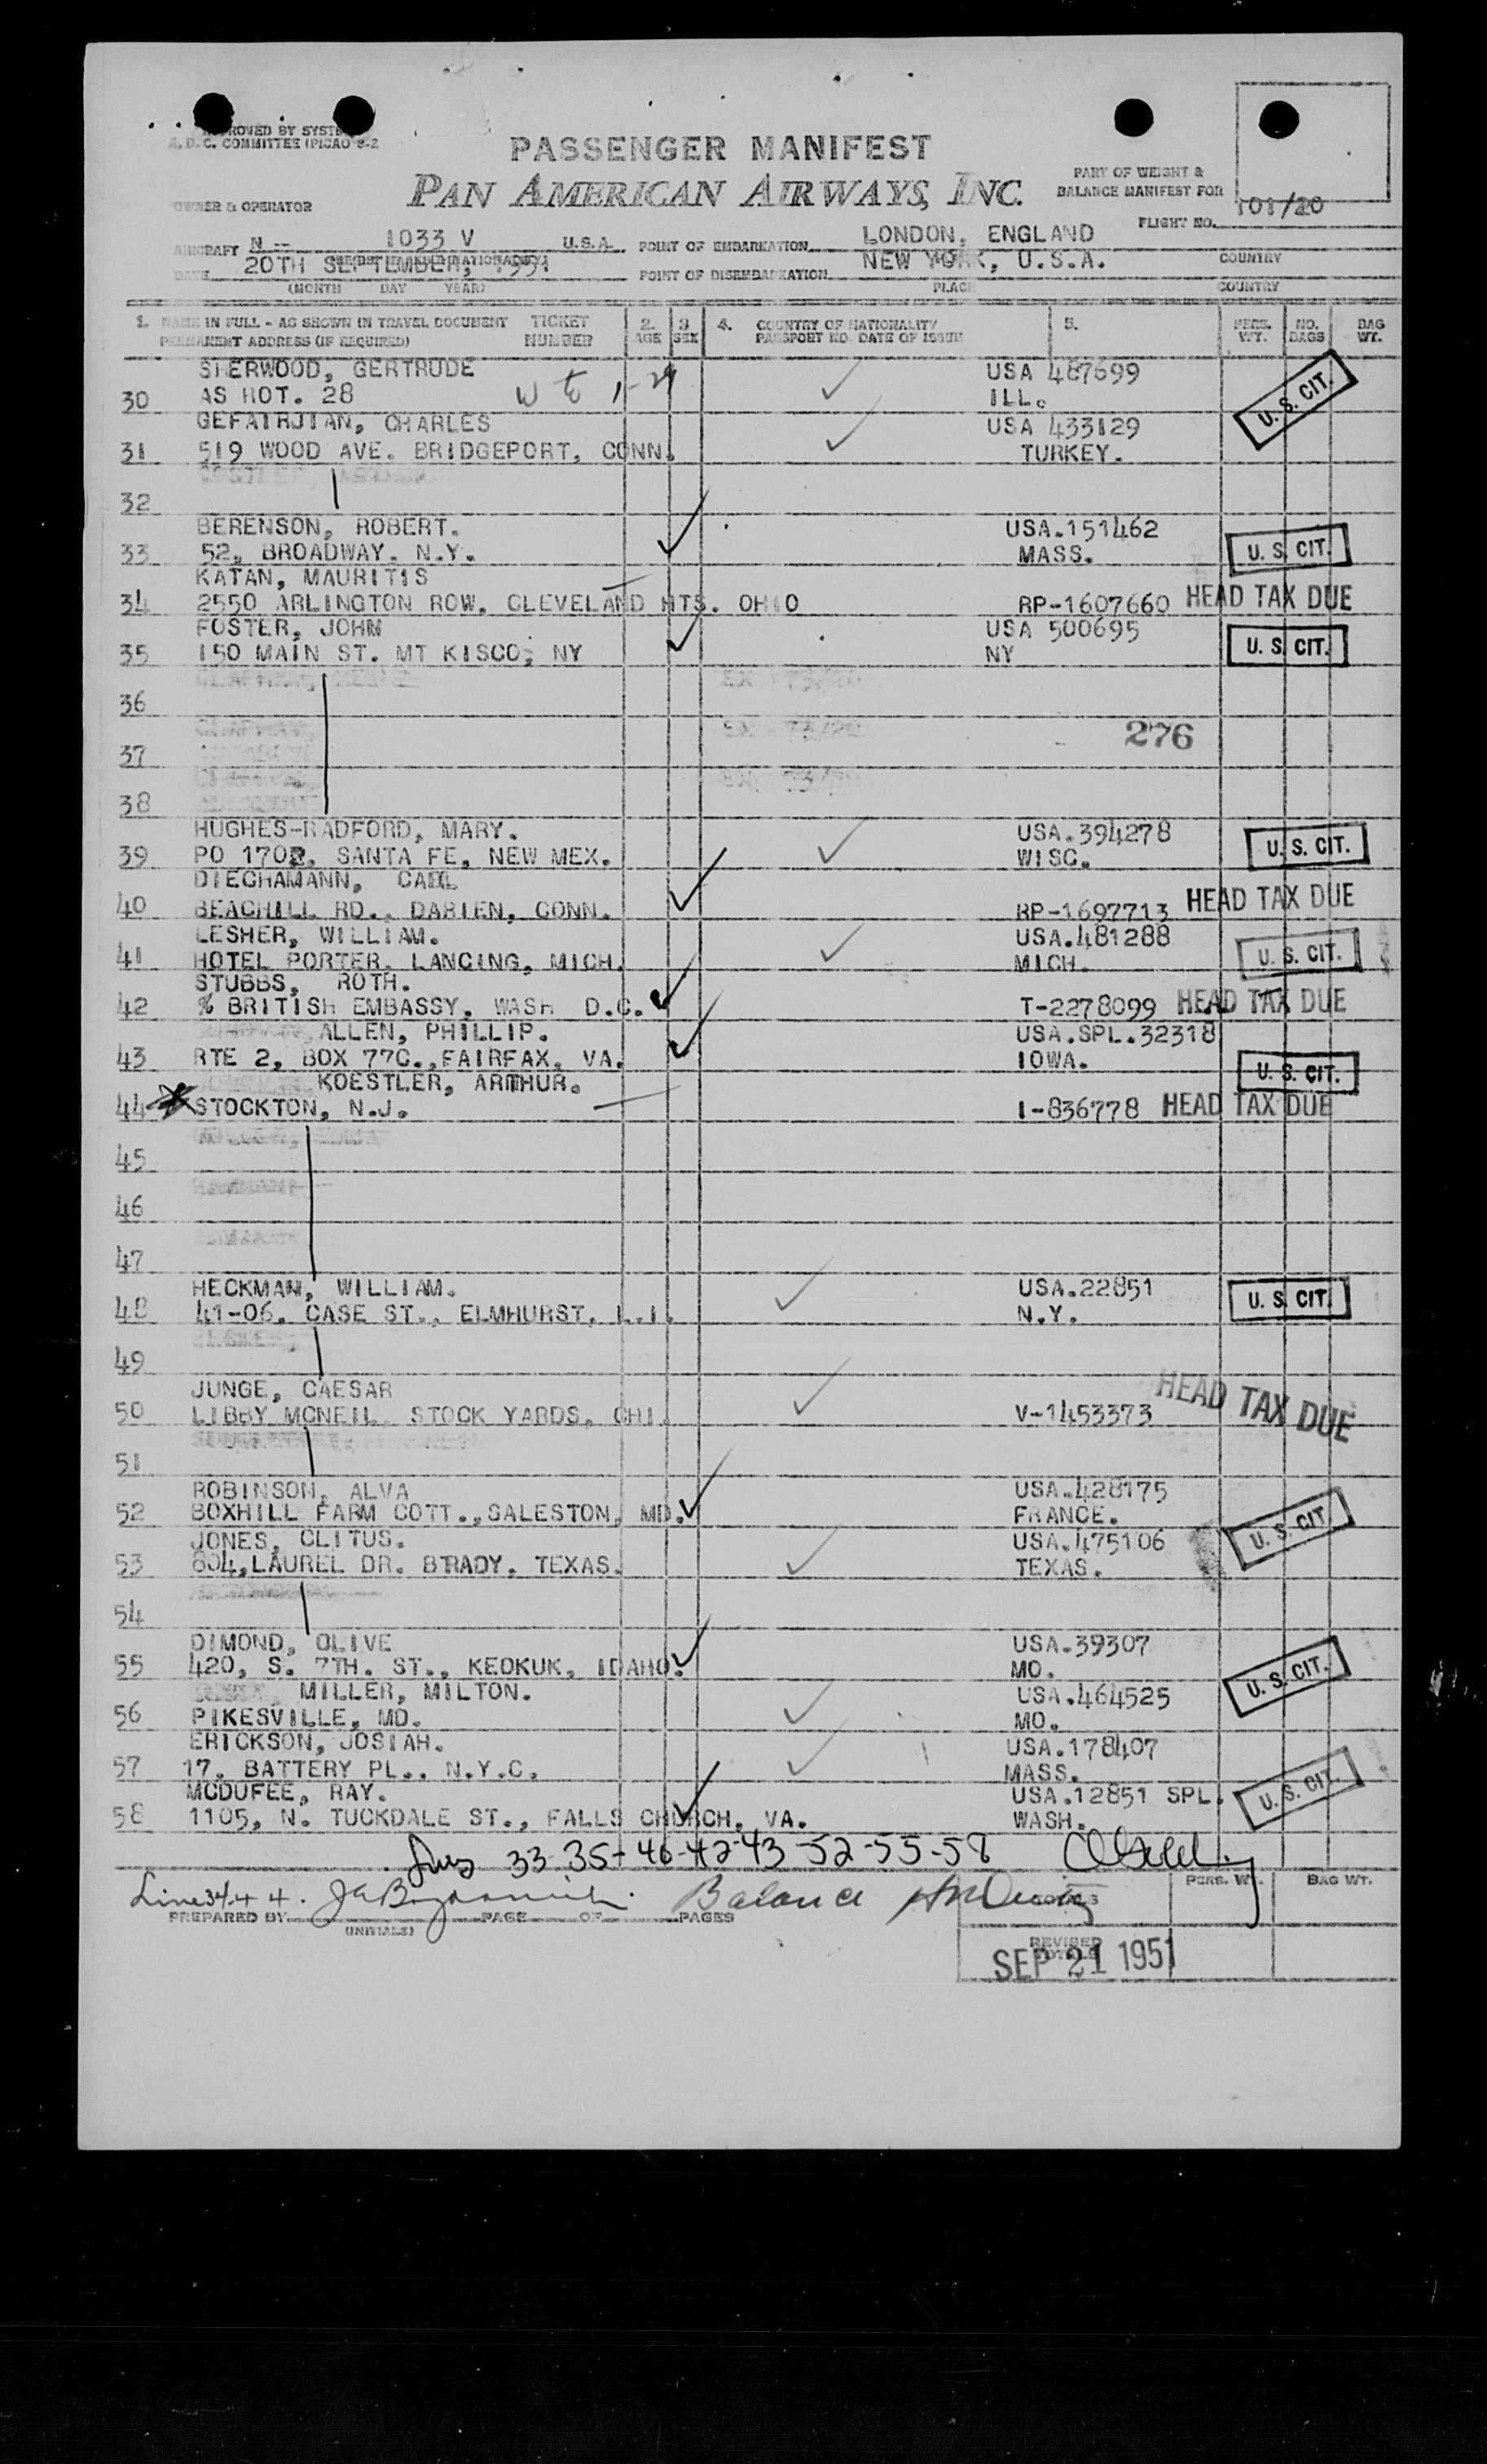 APPROVED BY SYSTEM
A.D.C. COMMITTEE (PICAO 9-2
PASSENGER MANIFEST
PAN AMERICAN AIRWAYS, INC.
PART OF WEIGHT &
BALANCE MANIFEST FOR
101/20
OWNER & OPERATOR
FLIGHT NO.
AIRCRAFT N -- 1033 V U.S.A. POINT OF EMBARKATION LONDON, ENGLAND
DATE 20TH SEPTEMBER, 1951 POINT OF DISEMBARKATION NEW YORK, U.S.A. COUNTRY
(MONTH DAY YEAR) PLACE COUNTRY
1. NAME IN FULL - AS SHOWN IN TRAVEL DOCUMENT TICKET 2. 3 4. COUNTRY OF NATIONALITY 5. PERS. NO. BAG
PERMANENT ADDRESS (IF REQUIRED) NUMBER AGE SEX PASSPORT NO. DATE OF ISSUE WT. BAGS WT.
SHERWOOD, GERTRUDE USA 487699
30 AS ROT. 28 ILL. U.S. CIT.
GEFAIRJIAN, CHARLES USA 433129
31 519 WOOD AVE. BRIDGEPORT, CONN. TURKEY.
32
BERENSON, ROBERT. USA.151462
33 52, BROADWAY. N.Y. MASS. U.S. CIT.
KATAN, MAURITIS
34 2550 ARLINGTON ROW, CLEVELAND HTS. OHIO RP-1607660 HEAD TAX DUE
FOSTER, JOHN USA 500695
35 150 MAIN ST. MT KISCO, NY NY U.S. CIT.
36
276
37
38
HUGHES-RADFORD, MARY. USA.394278
39 PO 1702, SANTA FE, NEW MEX. WISC. U.S. CIT.
DIECHAMANN, CARL
40 BEACHILL RD., DARIEN, CONN. RP-1697713 HEAD TAX DUE
LESHER, WILLIAM. USA.481288
41 HOTEL PORTER, LANCING, MICH. MICH. U.S. CIT.
STUBBS, ROTH.
42 % BRITISH EMBASSY, WASH D.C. T-2278099 HEAD TAX DUE
ALLEN, PHILLIP. USA.SPL.32318
43 RTE 2, BOX 77C.,FAIRFAX, VA. IOWA. U.S. CIT.
KOESTLER, ARTHUR.
44 STOCKTON, N.J. I-836778 HEAD TAX DUE
45
46
47
HECKMAN, WILLIAM. USA.22851
48 41-06, CASE ST., ELMHURST, L.I. N.Y. U.S. CIT.
49
JUNGE, CAESAR
50 LIBBY MCNEIL STOCK YARDS, CHI. V-1453373 HEAD TAX DUE
51
ROBINSON, ALVA USA.428175
52 BOXHILL FARM COTT.,SALESTON, MD. FRANCE. U.S. CIT.
JONES, CLITUS. USA.475106
53 604,LAUREL DR. BTRADY, TEXAS. TEXAS.
54
DIMOND, OLIVE USA.39307
55 420, S. 7TH. ST., KEOKUK, IDAHO. MO. U.S. CIT.
MILLER, MILTON. USA.464525
56 PIKESVILLE, MD. MO.
ERICKSON, JOSIAH. USA.178407
57 17, BATTERY PL., N.Y.C. MASS.
MCDUFEE, RAY. USA.12851 SPL. U.S. CIT.
58 1105, N. TUCKDALE ST., FALLS CHURCH, VA. WASH.
33-35-40-42-43-52-55-58
Line 34-44. Balance PERS. WT. BAG WT.
PREPARED BY PAGE OF PAGES
(INITIALS)
REVISED
SEP 21 1951